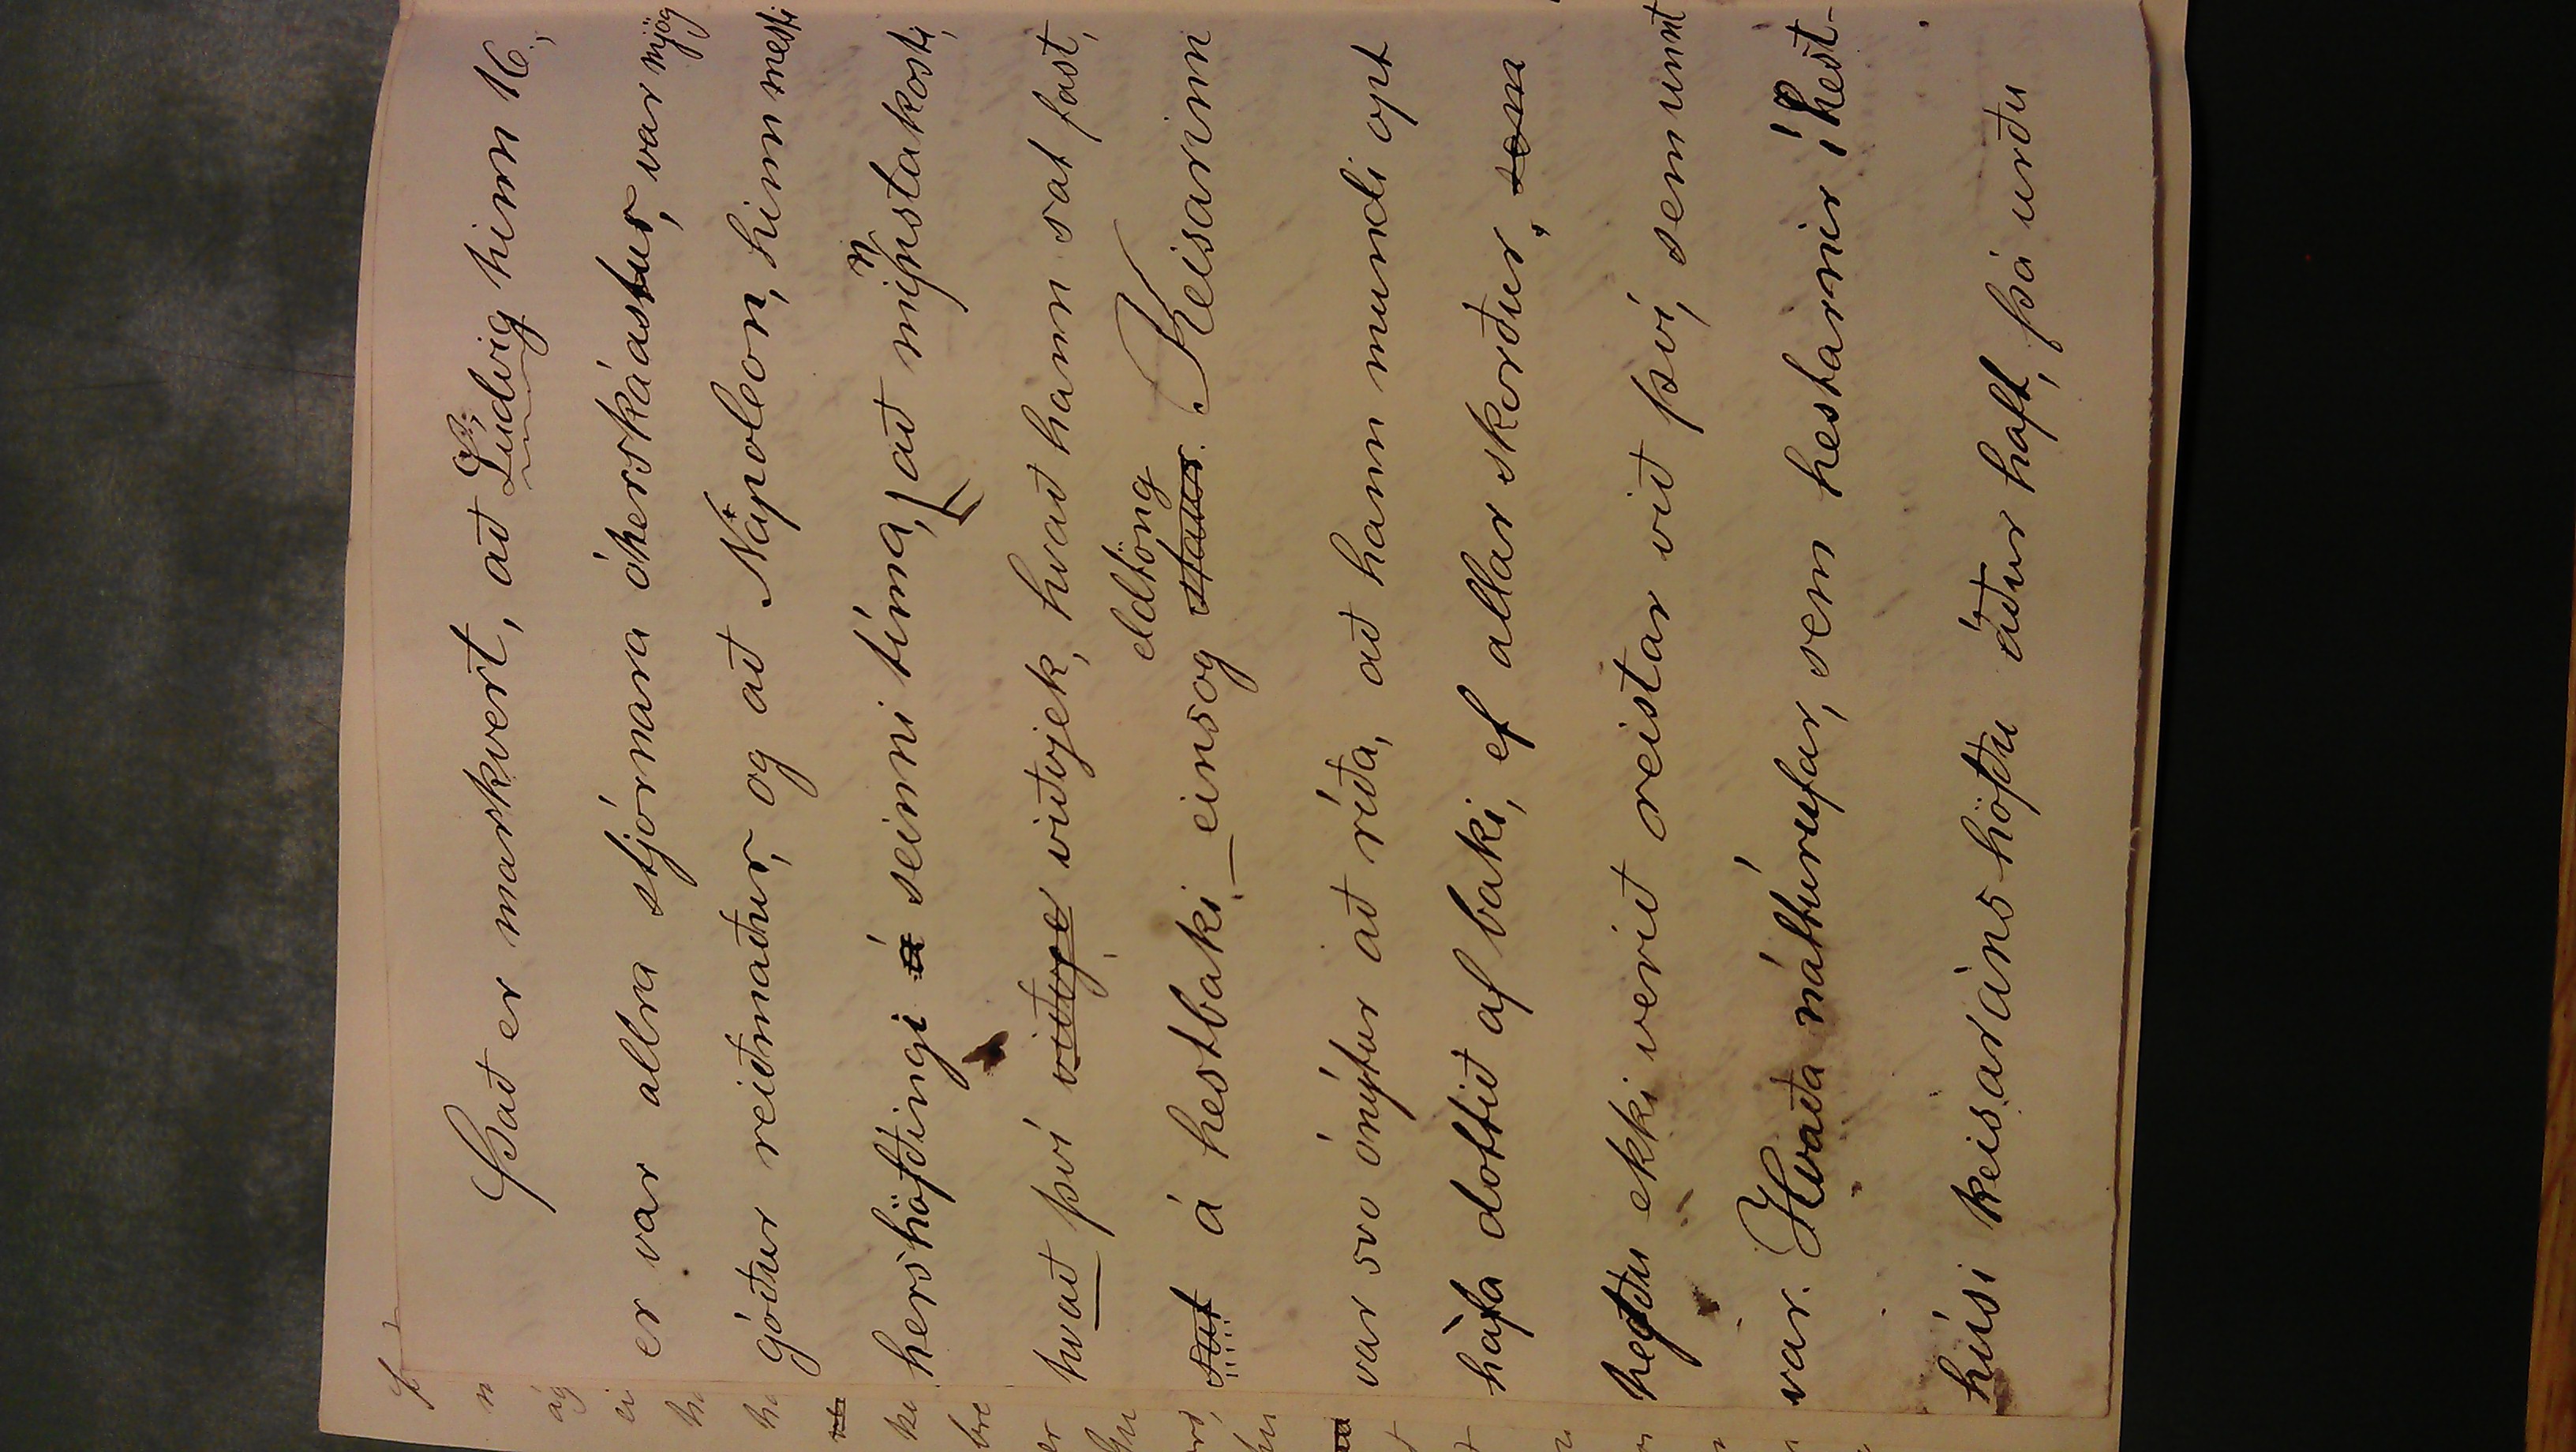 Það er markvert, að Lúdvig hinn 16.,
er var allra stjórnara óherskáastur, var mjög
góður reiðmaður, og að Nápoleon, hinn mesti
hershöfðingi á seinni tíma, að minstakosti,
hvað því viðvje viðvjek, hvað hann sat fast,
eldtöng
sat á hestbaki – einsog staur. Keisarinn
var svo ónýtur að ríða, að hann mundi opt
háfa dottið af baki, ef allar skorður, som
hefðu ekki verið reistar við því, sem unnt
var. Hvaða náttúrufar, sem hestarnir í hest-
húsi keisaráns höfðu áður haft, þá urðu